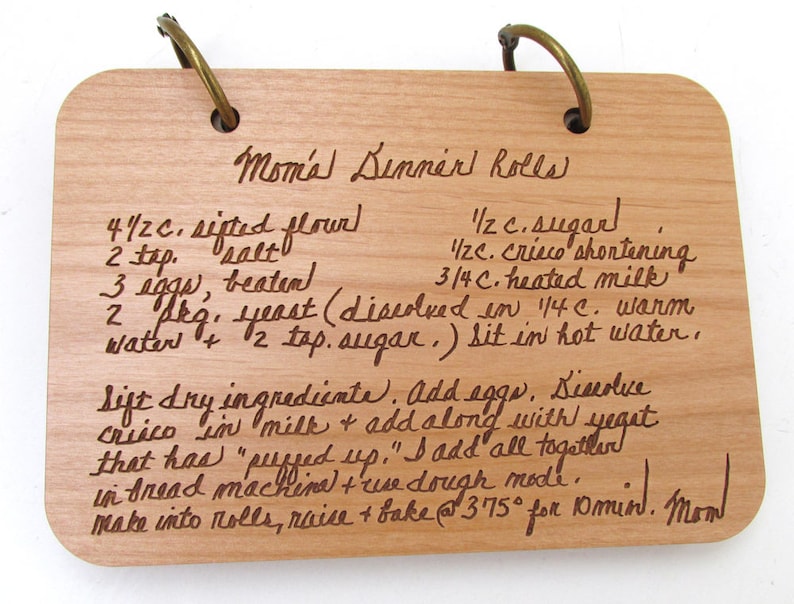 Mom's Dinner Rolls
4 1/2 c. sifted flour 1/2 c. sugar
2 tsp. salt 1/2 c. crisco shortening
3 eggs, beaten 3/4 c. heated milk
2 pkg. yeast (dissolved in 1/4 c. warm
water + 2 tsp. sugar.) Sit in hot water.
Sift dry ingredients. Add eggs. Dissolve
crisco in milk + add along with yeast
that has "puffed up." I add all together
in bread machine + use dough mode.
make into rolls, raise + bake @ 375° for 10 min. Mom